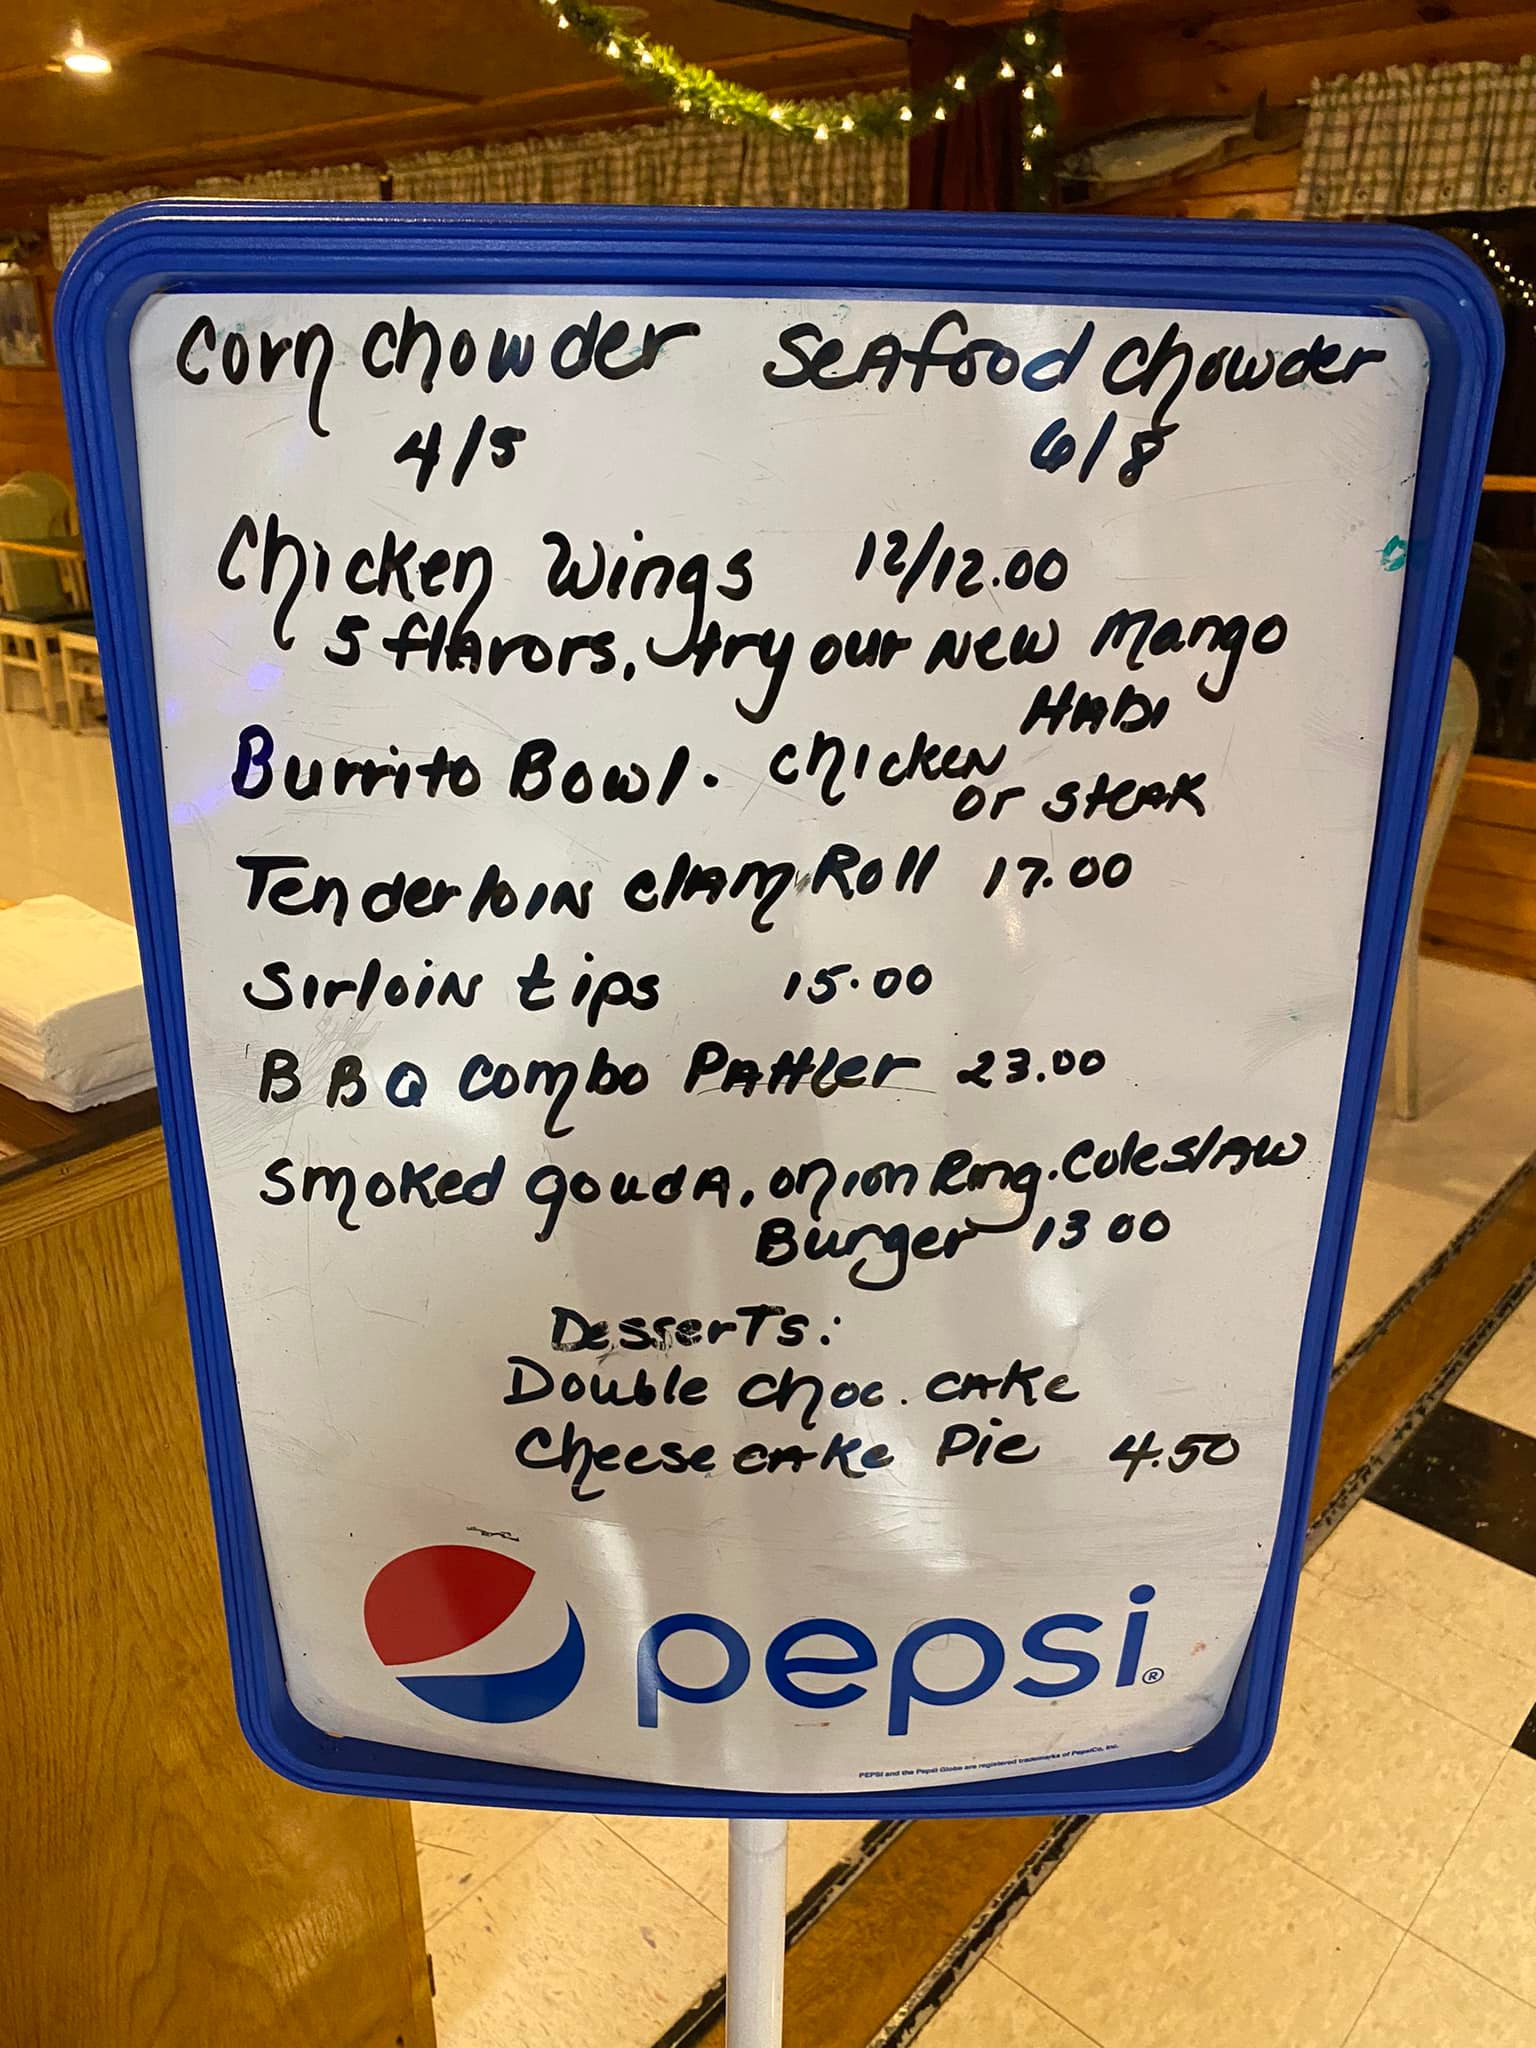 Corn Chowder Seafood Chowder
4/5 6/8
Chicken Wings 12/12.00
5 flavors, try our New Mango
HABI
Burrito Bowl. Chicken
or steak
Tenderloin Clam Roll 17.00
Sirloin tips 15.00
BBQ Combo Pattler 23.00
Smoked gouda, onion Ring. Coleslaw
Burger 13 00
Desserts:
Double Choc. Cake
Cheesecake Pie 4.50
pepsi®
PEPSI and the Pepsi Globe are registered trademarks of PepsiCo, Inc.